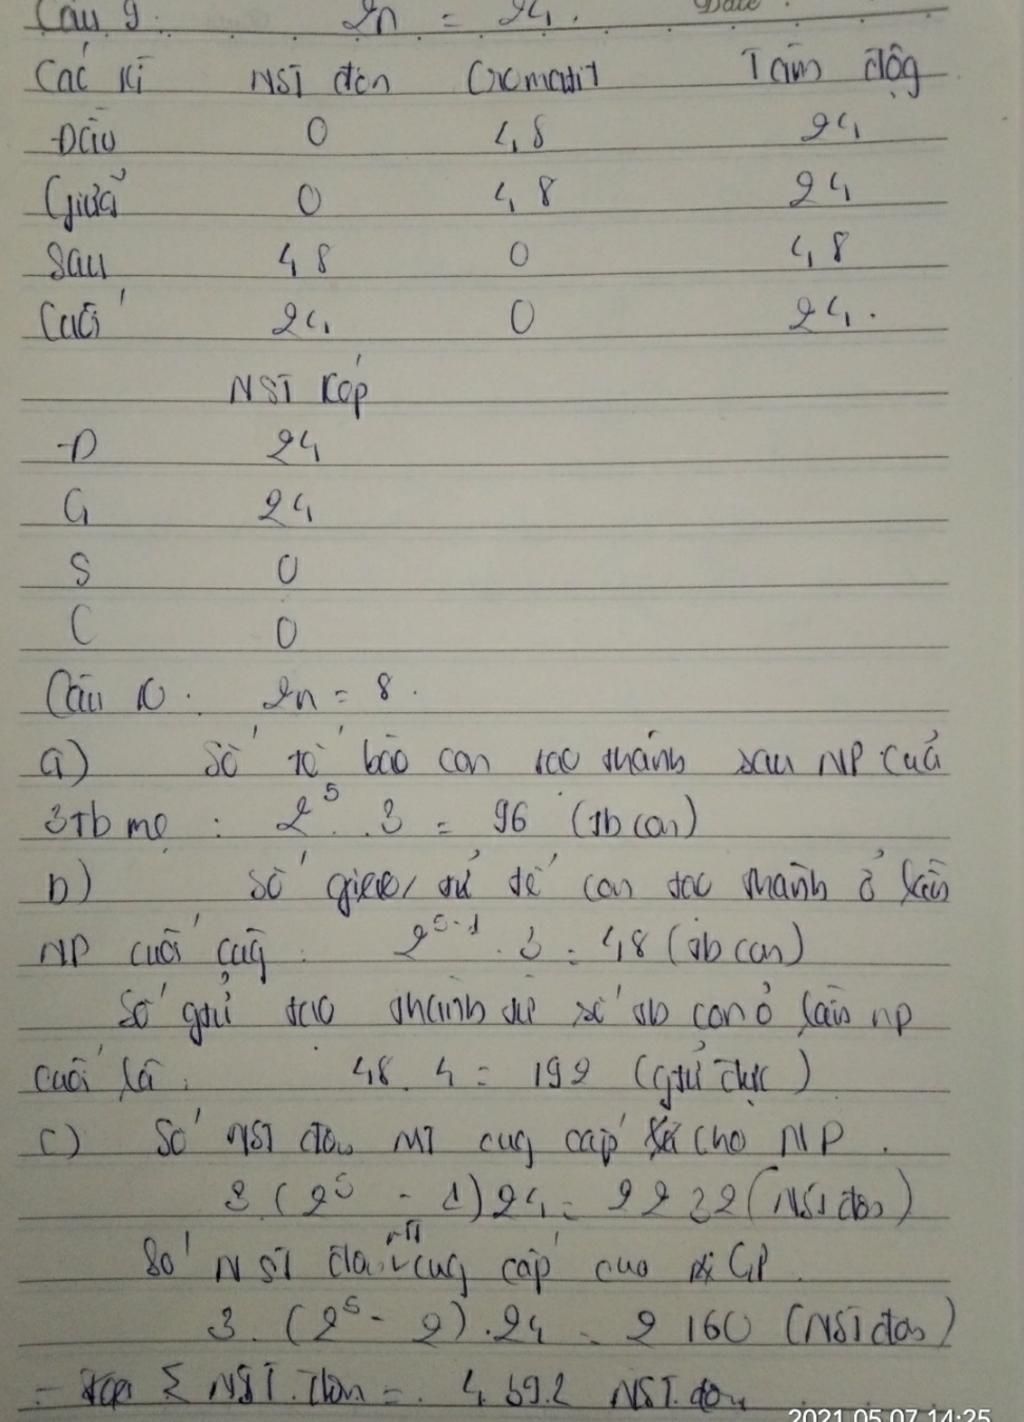 Câu 9. 2n = 24. Date
Các kì NST đơn Cromatit Tâm động
Đầu 0 48 24
Giữa 0 48 24
Sau 48 0 48
Cuối 24 0 24.
NST Kép
Đ 24
G 24
S 0
C 0
Câu 10. 2n = 8.
a) Số tế bào con tạo thành sau NP của
3 Tb mẹ : 2^5 . 3 = 96 (Tb con)
b) Số giao tử tế con tạo thành ở lần
NP cuối cùg : 2^5-1 . 3 = 48 (tb con)
Số gtử tạo thành từ số tb con ở lần np
cuối là : 48. 4 = 192 (gtử đực)
c) Số NST đơn MT cug cấp cho NP.
3 (2^5 - 1) 24 = 2232 (NST đơn)
Số NST đơn MT cug cấp cho GP.
3. (2^5 - 2) .24 = 2160 (NST đơn)
- Σ NST. đơn = 4392 NST. đơn
2021.05.07 14:25